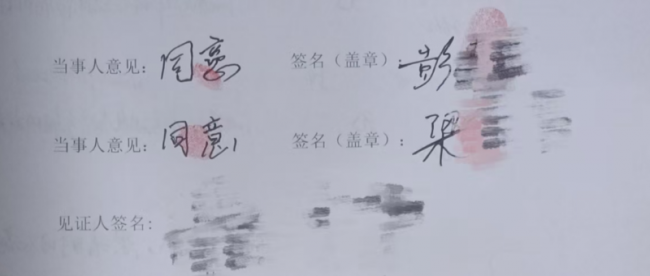 当事人意见：同意 签名（盖章）：彭
当事人意见：同意 签名（盖章）：梁
见证人签名：